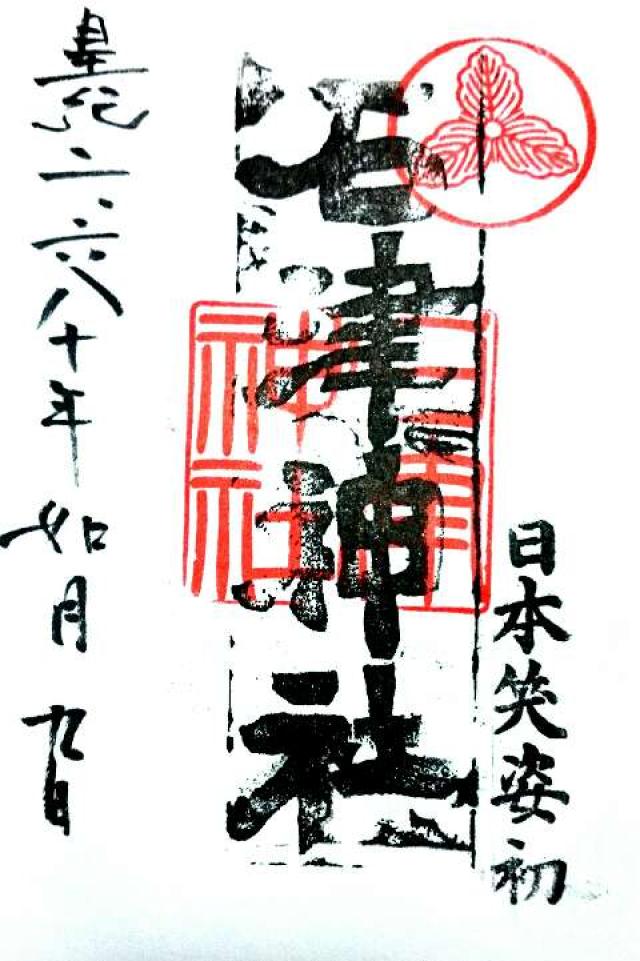 日本笑姿初
石津神社
石津神社
皇紀二六八十年如月九日